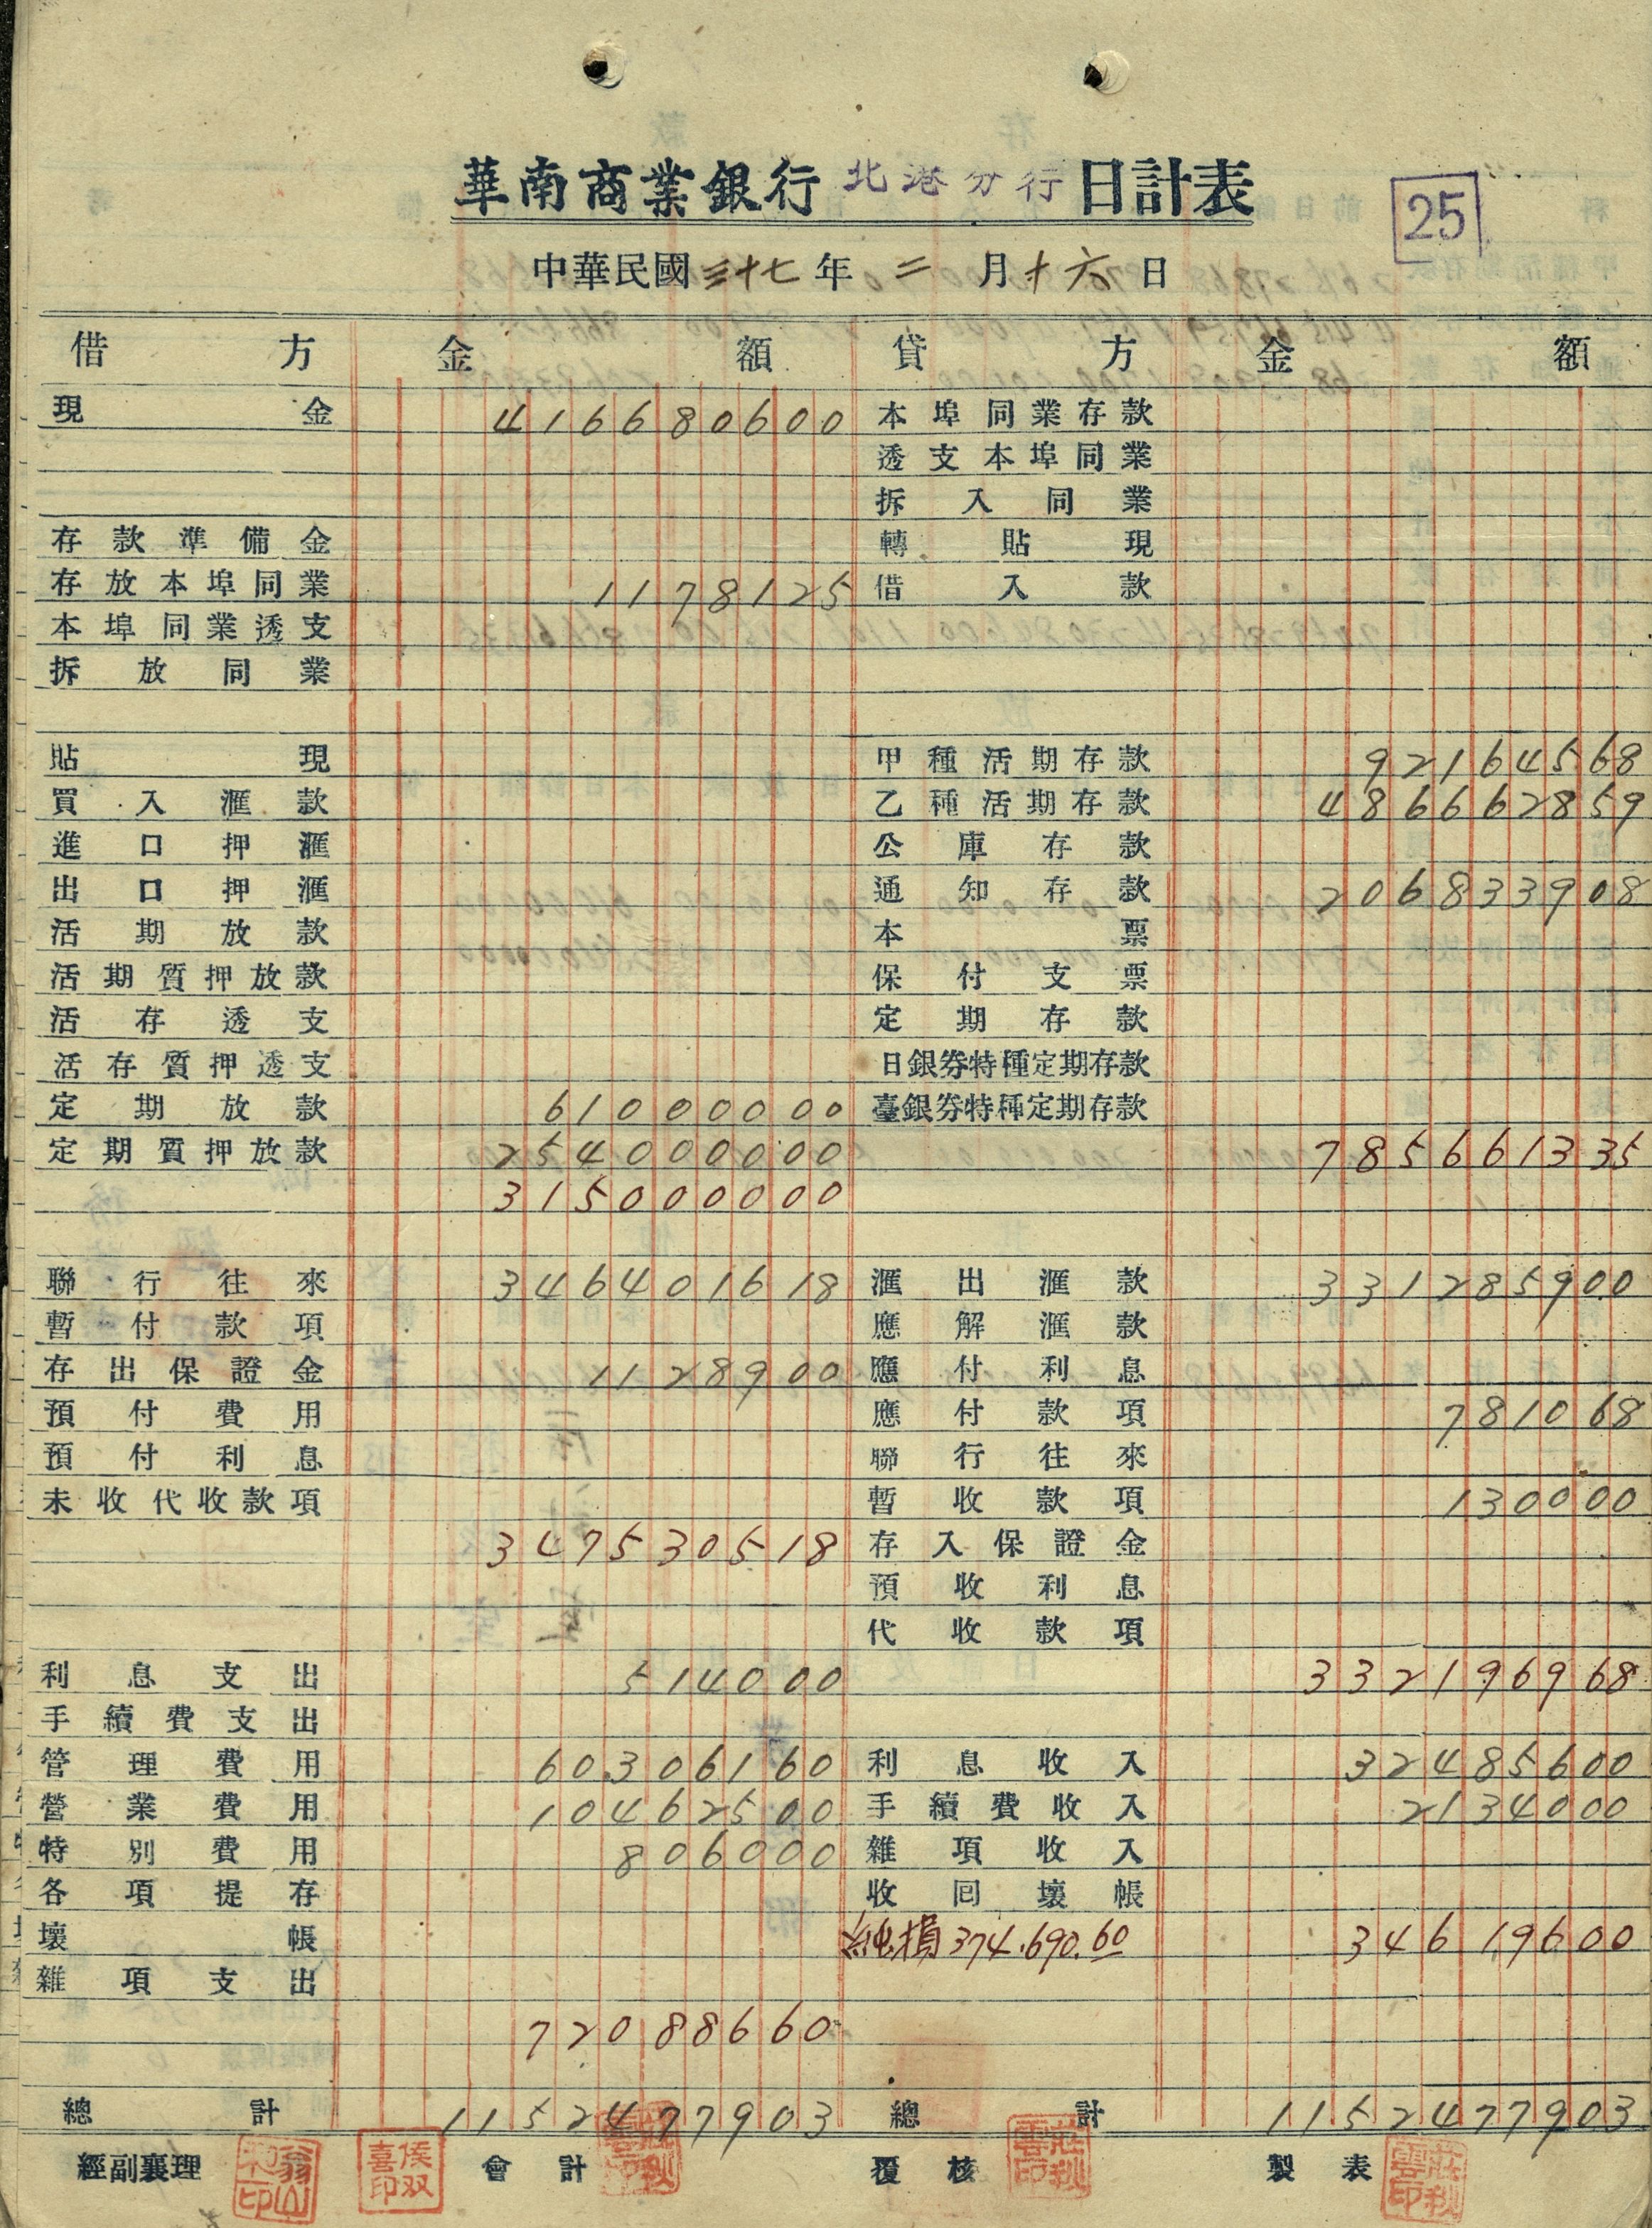 華南商業銀行 北港分行 日計表
25
中華民國三十七年二月十六日
借方 金額 貸方 金額
現金 416680600 本埠同業存款
透支本埠同業
拆入同業
存款準備金 轉貼現
存放本埠同業 1178125 借入款
本埠同業透支
拆放同業
貼現 甲種活期存款 92164568
買入滙款 乙種活期存款 486662859
進口押滙 公庫存款
出口押滙 通知存款 206833908
活期放款 本票
活期質押放款 保付支票
活存透支 定期存款
活存質押透支 日銀券特種定期存款
定期放款 61000000 臺銀券特種定期存款
定期質押放款 254000000 785661335
315000000
聯行往來 346401618 滙出滙款 331285900
暫付款項 應解滙款
存出保證金 1128900 應付利息
預付費用 應付款項 781068
預付利息 聯行往來
未收代收款項 暫收款項 130000
347530518 存入保證金
預收利息
代收款項
利息支出 514000 332196968
手續費支出
管理費用 60306160 利息收入 32485600
營業費用 10462500 手續費收入 2134000
特別費用 806000 雜項收入
各項提存 收回壞帳
壞帳 純損 374.690.60 34619600
雜項支出
72088660
總計 1152477903 總計 1152477903
經副襄理 會計 覆核 製表
侯双喜印
莊秋雲印
莊秋雲印
莊秋雲印